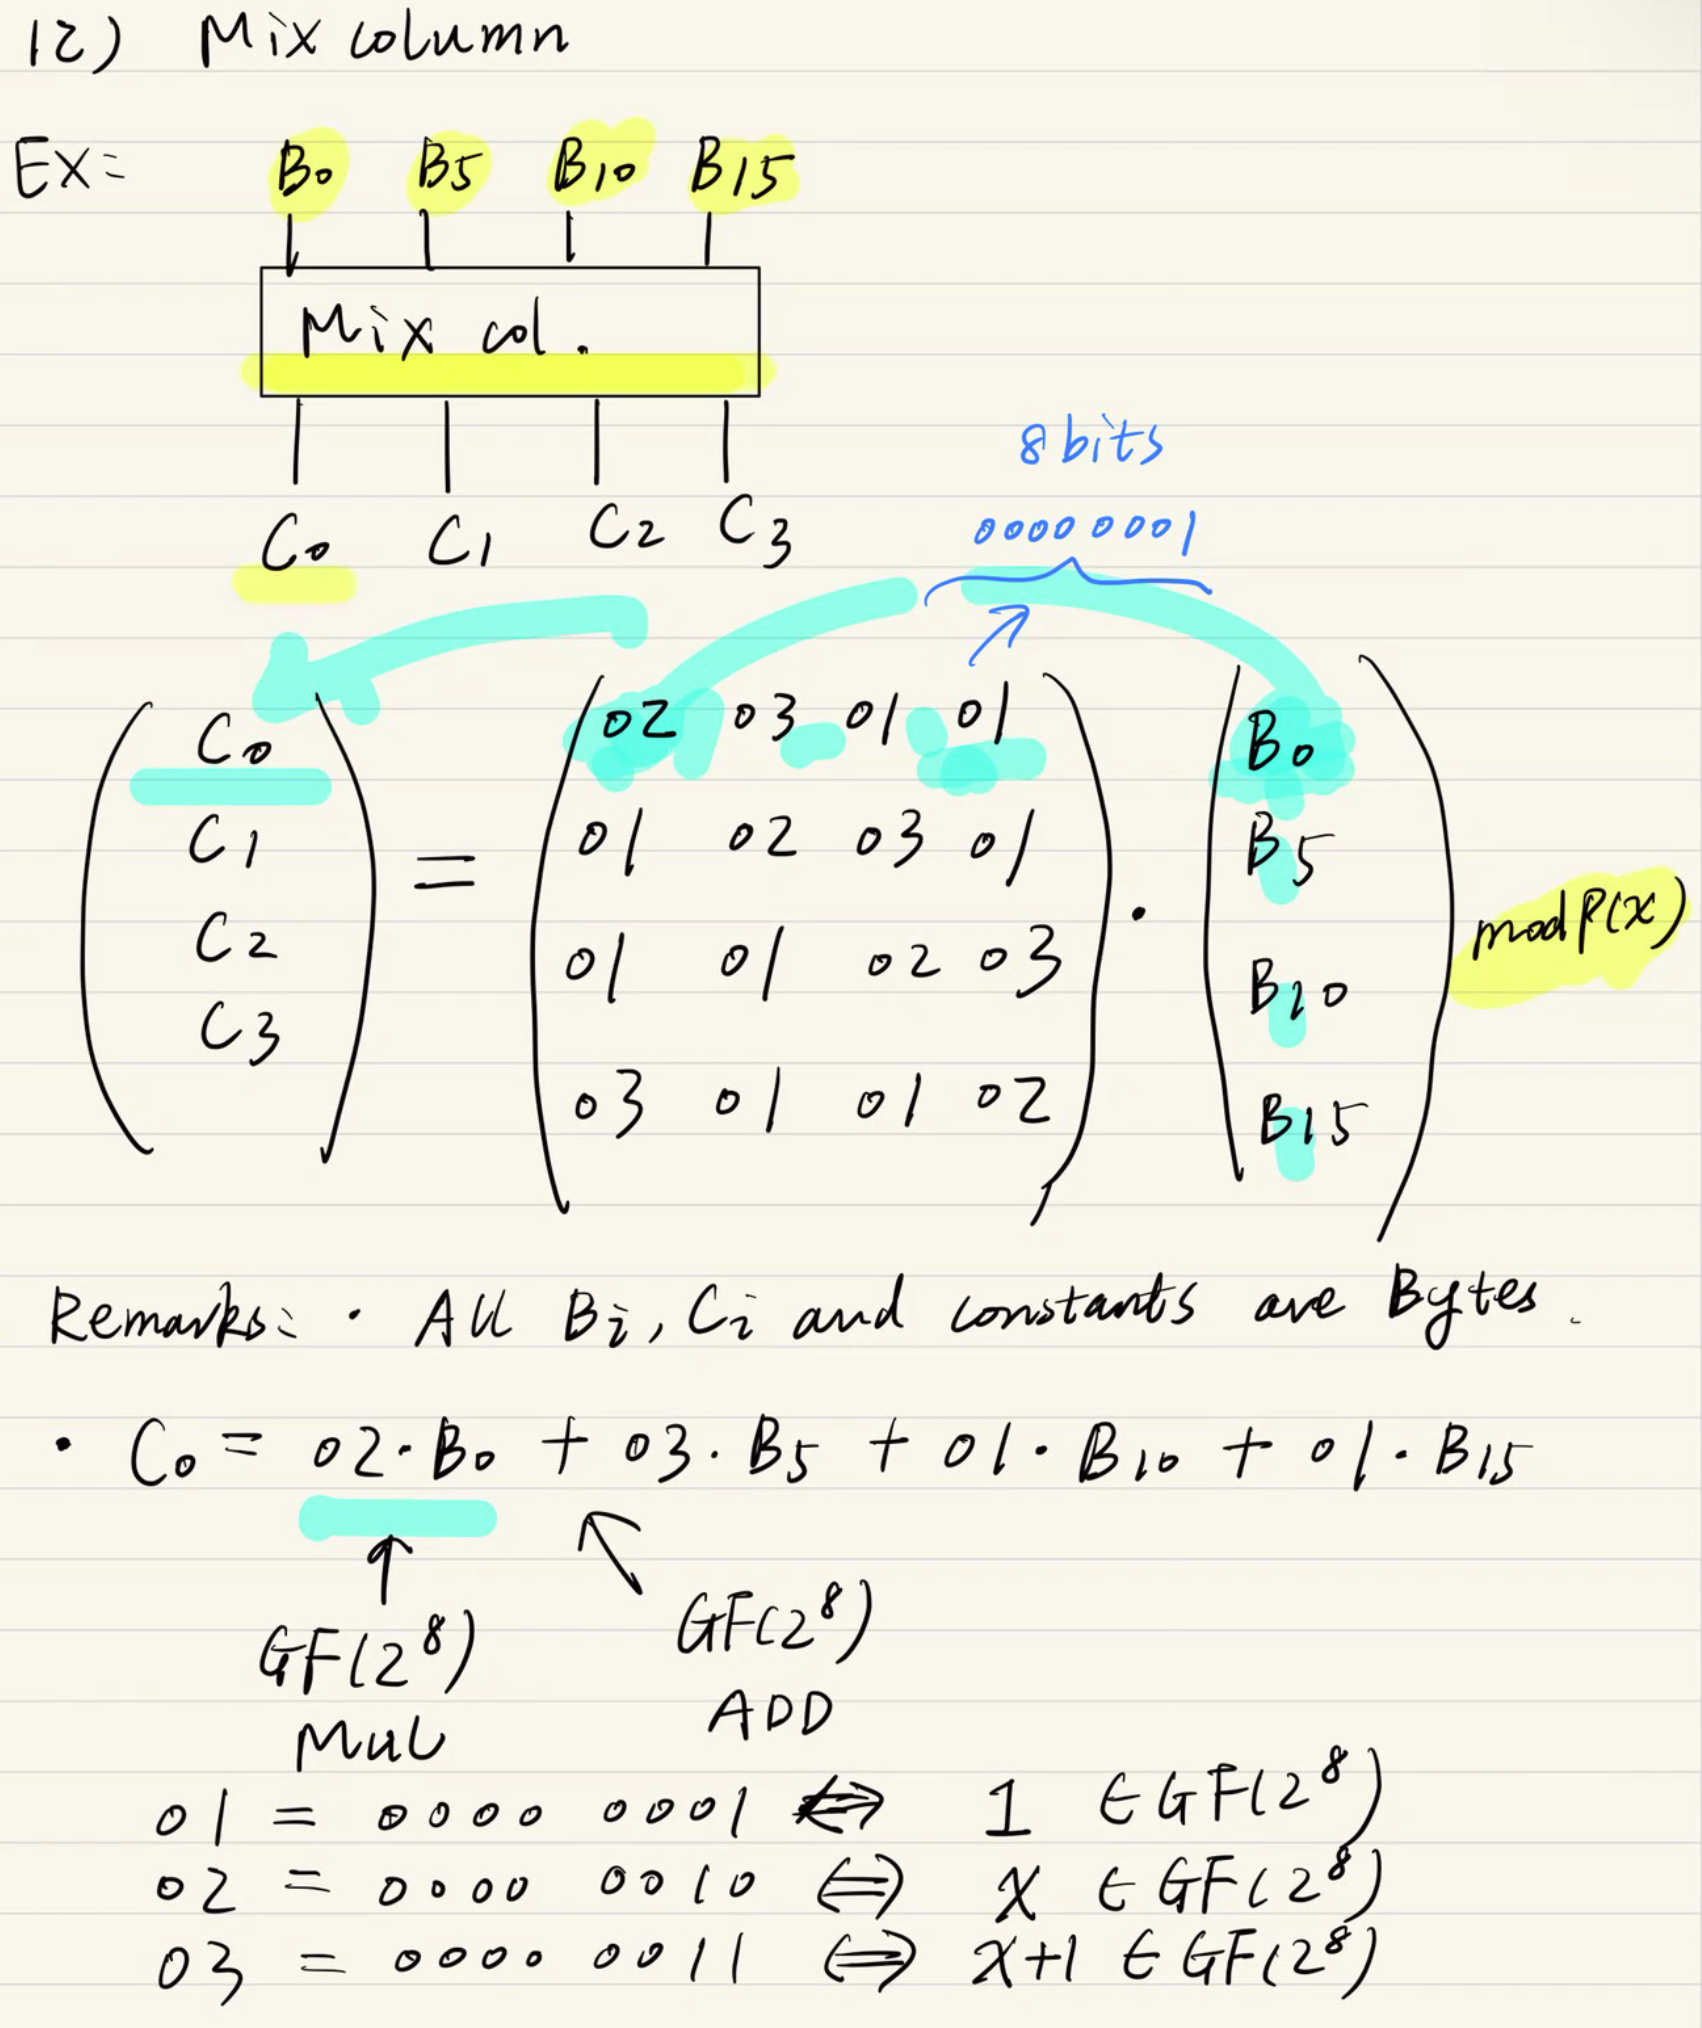 12) Mix column
Ex: B0 B5 B10 B15
Mix col.
8 bits
C0 C1 C2 C3
0000 0001
C0
C1
C2
C3
=
02 03 01 01
01 02 03 01
01 01 02 03
03 01 01 02
·
B0
B5
B10
B15
mod P(x)
Remarks: · All Bi, Ci and constants are Bytes.
· C0 = 02·B0 + 03·B5 + 01·B10 + 01·B15
GF(2^8) GF(2^8)
Mul ADD
01 = 0000 0001 ⇔ 1 ∈ GF(2^8)
02 = 0000 0010 ⇔ x ∈ GF(2^8)
03 = 0000 0011 ⇔ x+1 ∈ GF(2^8)